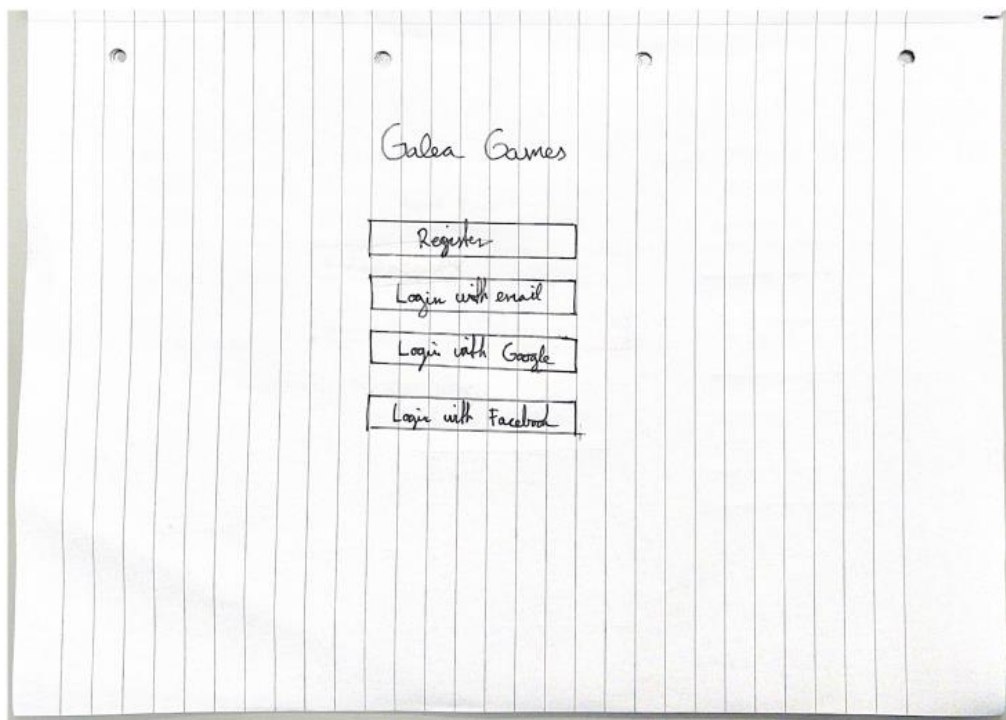 Galea Games
Register
Login with email
Login with Google
Login with Facebook